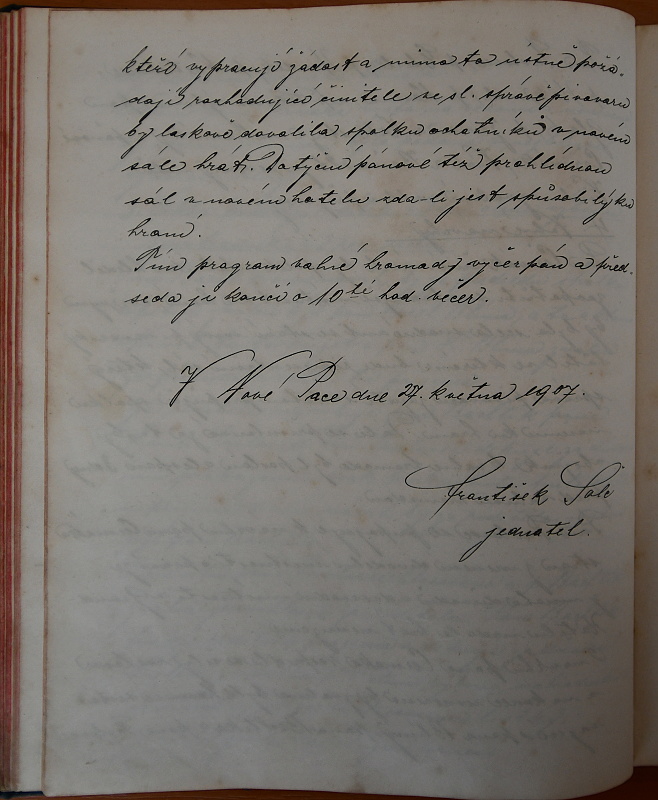 kteří vypracují žádost a mimo to ústně požá-
dají rozhodující činitele ze sl. správě pivovaru
by laskavě dovolila spolku ochotníků v novém
sále hrát. Dotyční pánové též prohlédnou
sál v novém hotelu zda-li jest spůsobilý ku
hraní.
Tím program valné hromady vyčerpán a před-
seda ji končí o 10té hod. večer.
V Nové Pace dne 27. května 1907.
František Šolc
jednatel.